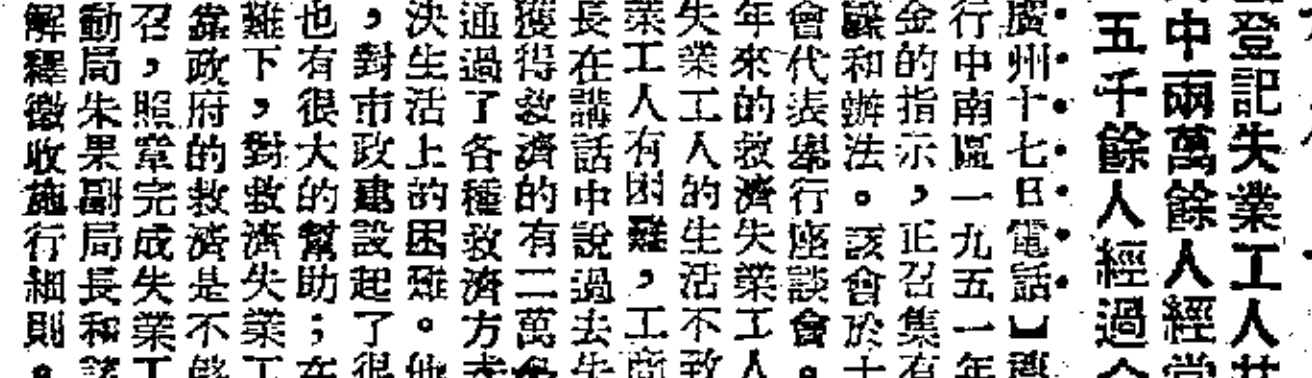 登記失業工人共
中兩萬餘人經常
五千餘人經過
廣州十七日電話】
行中南區一九五一年
金的指示,正召集有
和辦法。該會於十
會代表舉行座談會。
年來的救濟失業工人
失業工人的生活不致
業工人有困難,工商
長在講話中說過去失
獲得救濟的有二萬多
通過了各種救濟方
決生活上的困難。他
,對市政建設起了很
也有很大的幫助;在
難下,對救濟失業工
靠政府的救濟是不能
召,照常完成失業工
動局朱果副局長和
解釋徵收施行細則。